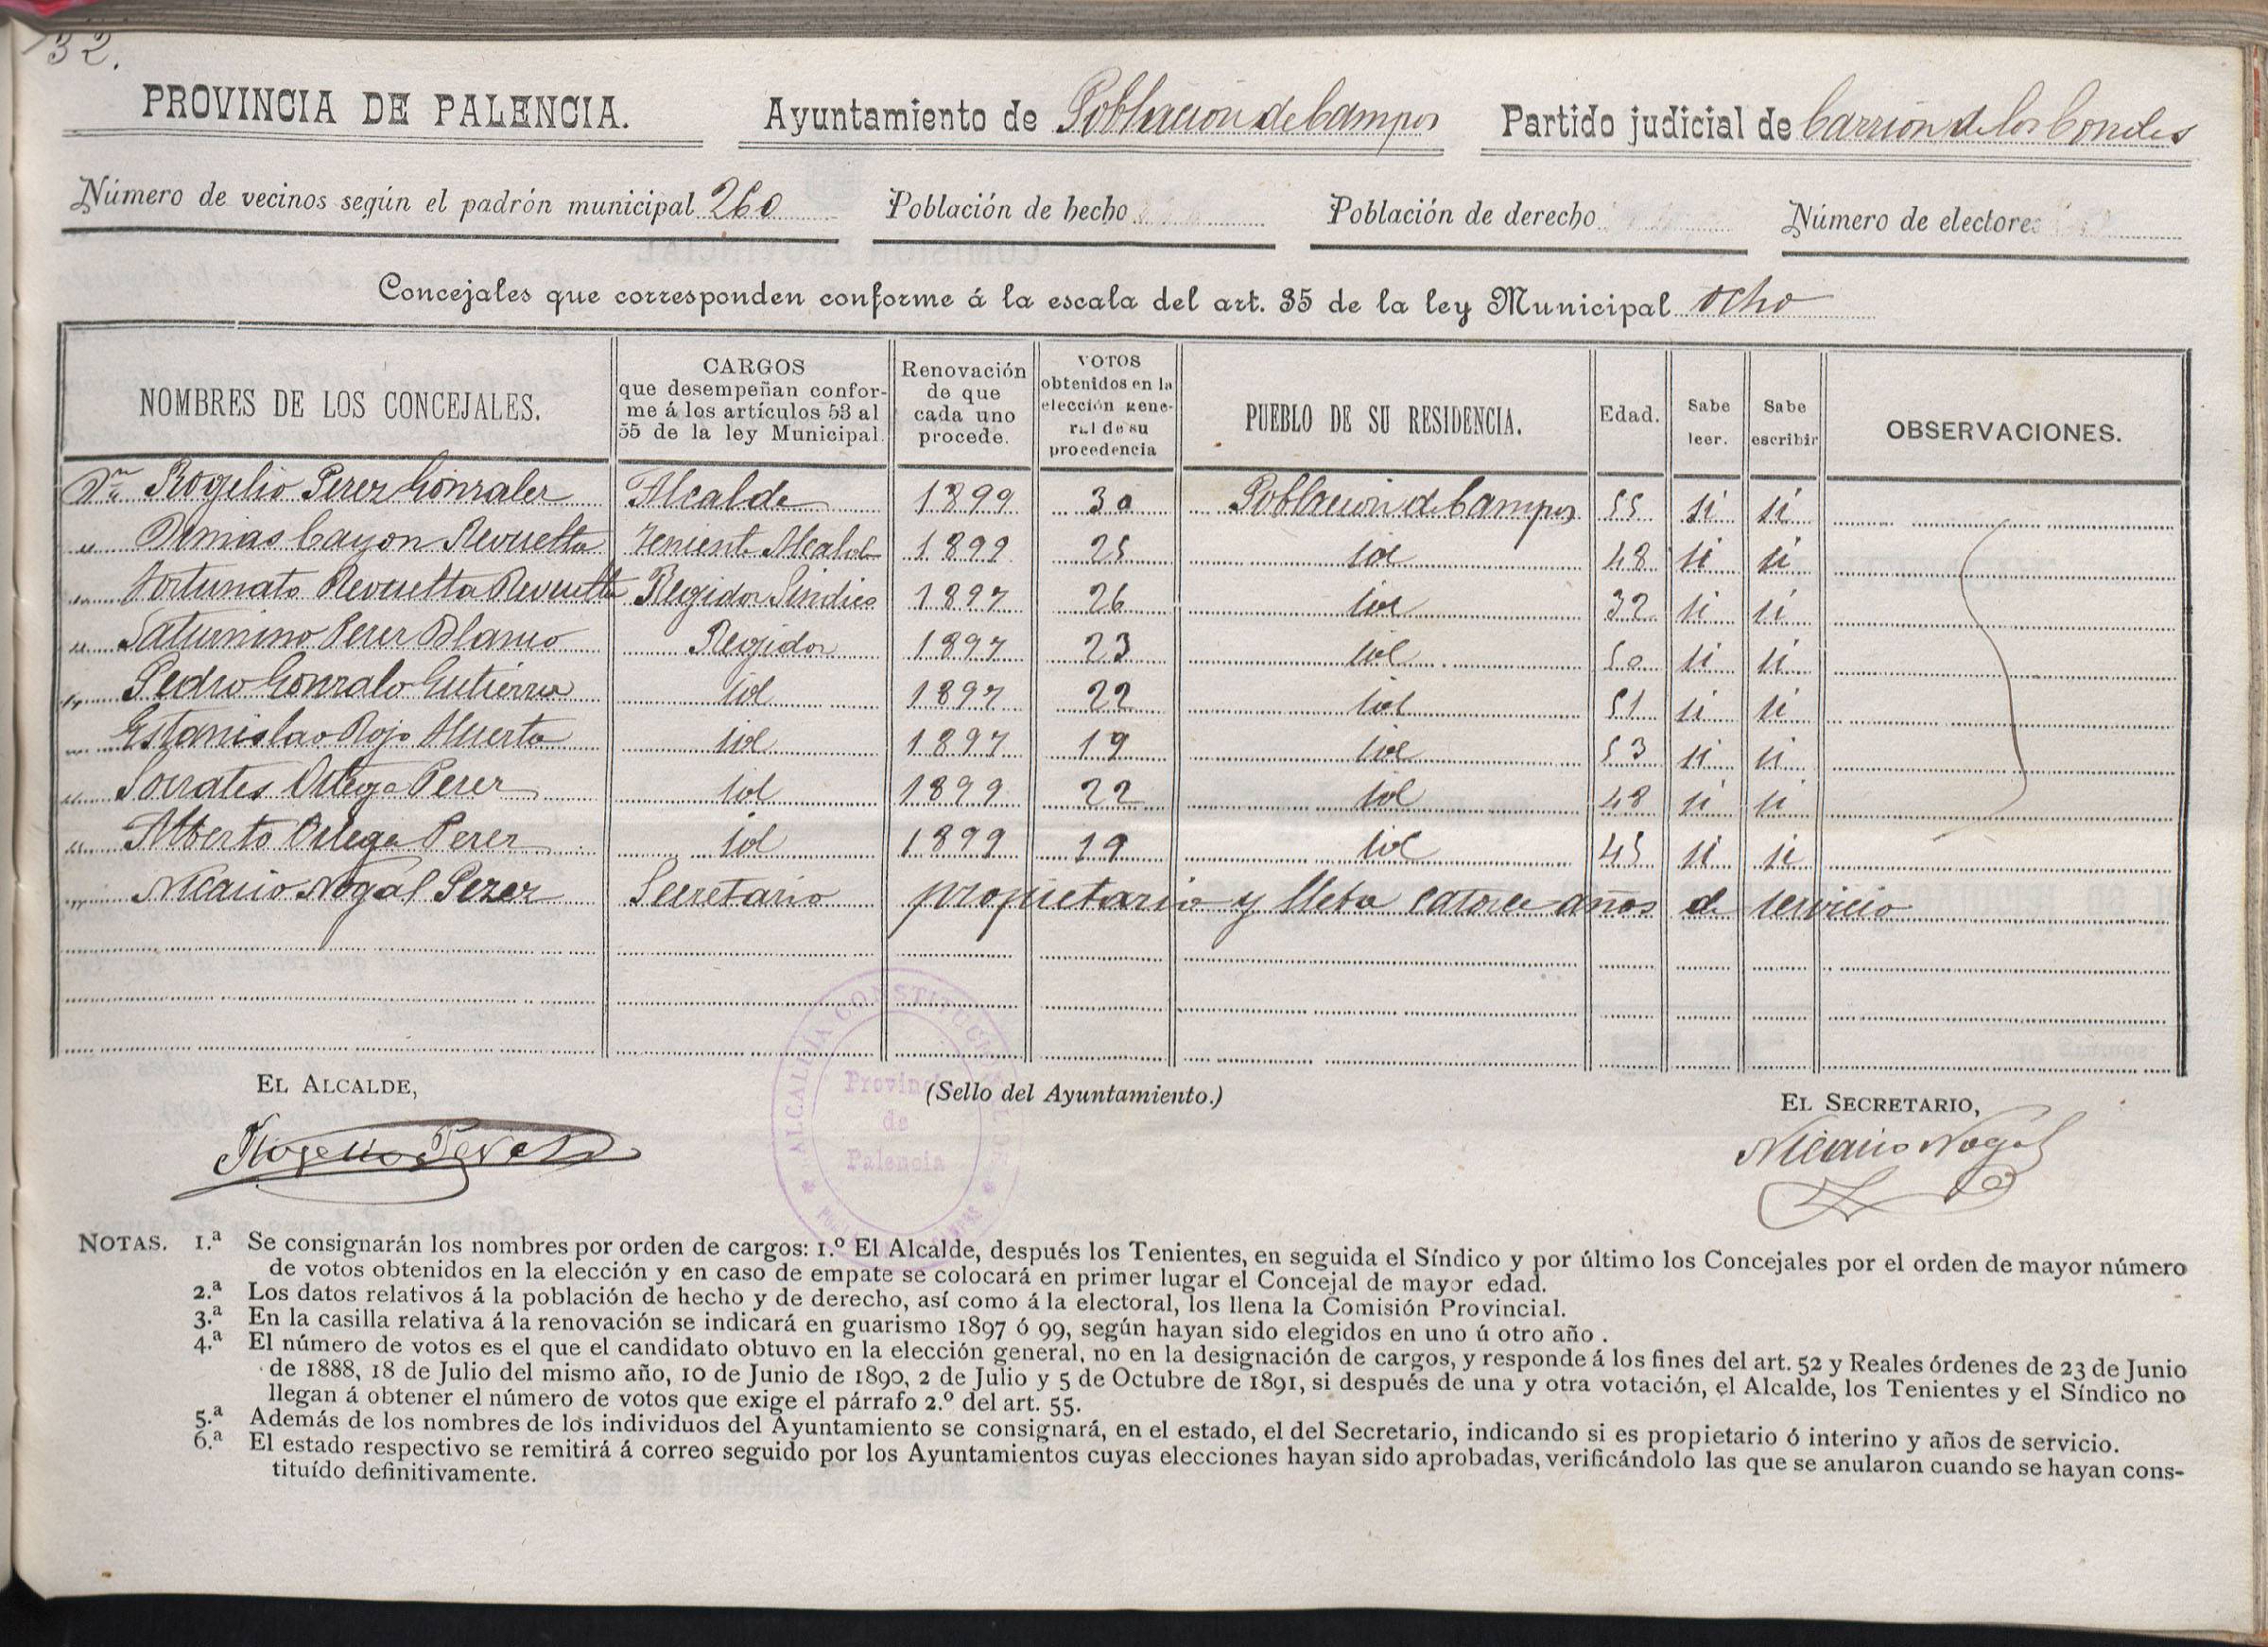 32.
PROVINCIA DE PALENCIA. Ayuntamiento de Poblacion de Campos Partido judicial de Carrion de los Condes
Número de vecinos según el padrón municipal 260 Población de hecho Población de derecho Número de electores
Concejales que corresponden conforme á la escala del art. 35 de la ley Municipal ocho
NOMBRES DE LOS CONCEJALES. CARGOS que desempeñan confor-me á los artículos 53 al 55 de la ley Municipal. Renovación de que cada uno procede. VOTOS obtenidos en la elección gene-ral de su procedencia PUEBLO DE SU RESIDENCIA. Edad. Sabe leer. Sabe escribir OBSERVACIONES.
Dn Rogelio Perez Gonzalez Alcalde 1899 30 Poblacion de Campos 55 si si
" Cayon Revuelta Teniente Alcalde 1899 25 id 48 si si
" Fortunato Revuelta Revuelta Regidor Sindico 1897 26 id 32 si si
" Saturnino Perez Blanco Regidor 1897 23 id 50 si si
" Pedro Gonzalo Gutierrez id 1897 22 id 51 si si
" Estanislao Rojo Huerta id 1897 19 id 53 si si
" Socrates Ortega Perez id 1899 22 id 48 si si
" Alberto Ortega Perez id 1899 19 id 45 si si
" Nicanio Nogal Perez Secretario propietario y lleba catorce años de servicio
EL ALCALDE, (Sello del Ayuntamiento.) EL SECRETARIO,
Rogelio Perez Nicanio Nogal
ALCALDÍA CONSTITUCIONAL
Provincia
de
Palencia
NOTAS. 1.ª Se consignarán los nombres por orden de cargos: 1.º El Alcalde, después los Tenientes, en seguida el Síndico y por último los Concejales por el orden de mayor número
de votos obtenidos en la elección y en caso de empate se colocará en primer lugar el Concejal de mayor edad.
2.ª Los datos relativos á la población de hecho y de derecho, así como á la electoral, los llena la Comisión Provincial.
3.ª En la casilla relativa á la renovación se indicará en guarismo 1897 ó 99, según hayan sido elegidos en uno ú otro año .
4.ª El número de votos es el que el candidato obtuvo en la elección general, no en la designación de cargos, y responde á los fines del art. 52 y Reales órdenes de 23 de Junio
de 1888, 18 de Julio del mismo año, 10 de Junio de 1890, 2 de Julio y 5 de Octubre de 1891, si después de una y otra votación, el Alcalde, los Tenientes y el Síndico no
llegan á obtener el número de votos que exige el párrafo 2.º del art. 55.
5.ª Además de los nombres de los individuos del Ayuntamiento se consignará, en el estado, el del Secretario, indicando si es propietario ó interino y años de servicio.
6.ª El estado respectivo se remitirá á correo seguido por los Ayuntamientos cuyas elecciones hayan sido aprobadas, verificándolo las que se anularon cuando se hayan cons-
tituído definitivamente.